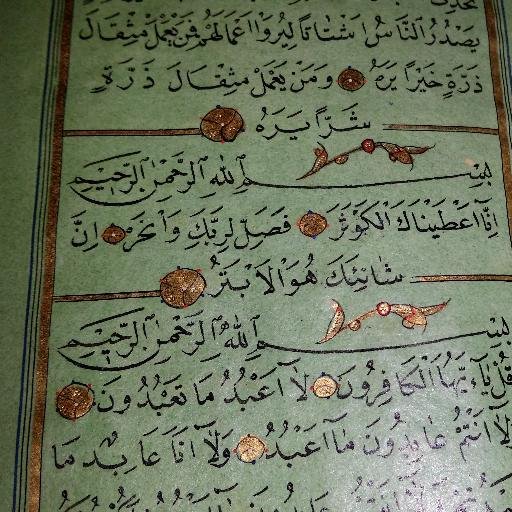 يَصْدُرُ النَّاسُ اَشْتَاتًا لِيُرَوْا اَعْمَالَهُمْ فَمَنْ يَعْمَلْ مِثْقَالَ
ذَرَّةٍ خَيْرًا يَرَهُ وَمَنْ يَعْمَلْ مِثْقَالَ ذَرَّةٍ
شَرًّا يَرَهُ
بِسْمِ اللهِ الرَّحْمٰنِ الرَّحِيمِ
اِنَّا اَعْطَيْنَاكَ الْكَوْثَرَ فَصَلِّ لِرَبِّكَ وَانْحَرْ اِنَّ
شَانِئَكَ هُوَ الْاَبْتَرُ
بِسْمِ اللهِ الرَّحْمٰنِ الرَّحِيمِ
قُلْ يَاۤ اَيُّهَا الْكَافِرُونَ لَاۤ اَعْبُدُ مَا تَعْبُدُونَ
وَلَاۤ اَنْتُمْ عَابِدُونَ مَاۤ اَعْبُدُ وَلَاۤ اَنَا عَابِدٌ مَا